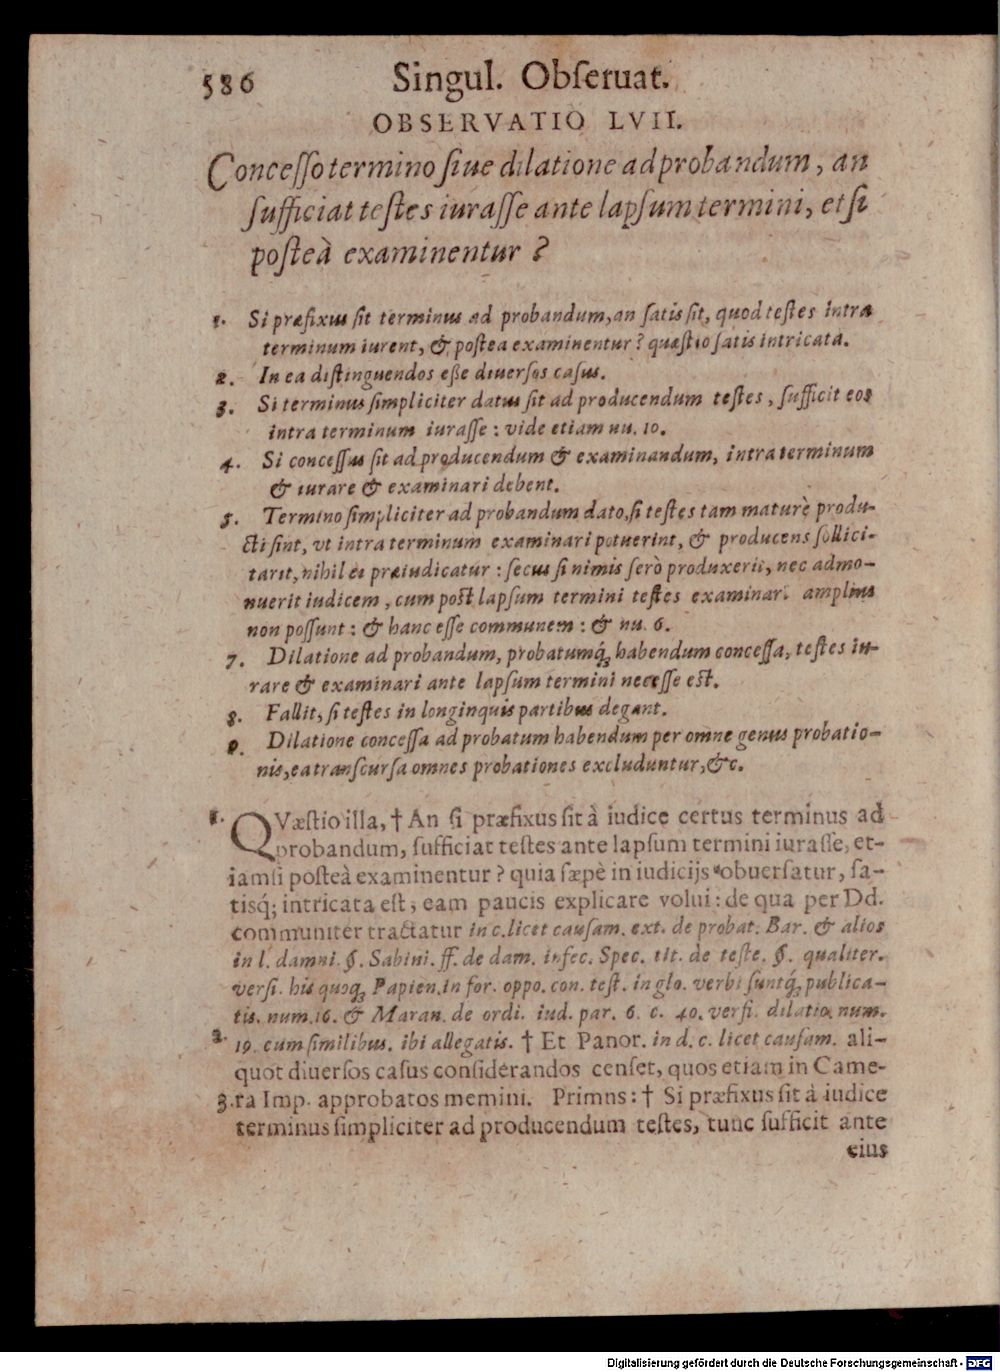 586 Singul. Obſeruat.
OBSERVATIO LVII.
Conceſſo termino ſiue dilatione ad probandum, an
ſufficiat teſtes iuraſſe ante lapſum termini, etſi
poſteà examinentur ?
1. Si præfixus ſit terminus ad probandum, an ſatis ſit, quod teſtes intra
terminum iurent, & poſtea examinentur ? quæſtio ſatis intricata.
2. In ea diſtinguendos eße diuerſos caſus.
3. Si terminus ſimpliciter datus ſit ad producendum teſtes, ſufficit eos
intra terminum iuraſſe : vide etiam nu. 10.
4. Si conceſſus ſit ad producendum & examinandum, intra terminum
& iurare & examinari debent.
5. Termino ſimpliciter ad probandum dato, ſi teſtes tam maturè produ-
cti ſint, vt intra terminum examinari potuerint, & producens ſollici-
tarit, nihil ei præiudicatur : ſecus ſi nimis ſerò produxerit, nec admo-
nuerit iudicem, cum poſt lapſum termini teſtes examinari amplius
non poſſunt : & hanc eſſe communem : & nu. 6.
7. Dilatione ad probandum, probatumq́ꝫ habendum conceſſa, teſtes iu-
rare & examinari ante lapſum termini neceſſe eſt.
8. Fallit, ſi teſtes in longinquis partibus degant.
9. Dilatione conceſſa ad probatum habendum per omne genus probatio-
nis, ea tranſcurſa omnes probationes excluduntur, &c.
1. QVæſtio illa, † An ſi præfixus ſit à iudice certus terminus ad
probandum, ſufficiat teſtes ante lapſum termini iuraſſe, et-
iamſi poſteà examinentur ? quia ſæpè in iudicijs obuerſatur, ſa-
tisq́; intricata eſt, eam paucis explicare volui : de qua per Dd.
communiter tractatur in c. licet cauſam. ext. de probat. Bar. & alios
in l. damni. §. Sabini. ff. de dam. infec. Spec. tit. de teſte. §. qualiter.
verſi. his quoqꝫ Papien. in for. oppo. con. teſt. in glo. verbi ſuntq́ꝫ publica-
tis. num. 16. & Maran. de ordi. iud. par. 6. c. 40. verſi. dilatio. num.
2. 19. cum ſimilibus. ibi allegatis. † Et Panor. in d. c. licet cauſam. ali-
quot diuerſos caſus conſiderandos cenſet, quos etiam in Came-
3. ra Imp. approbatos memini. Primus : † Si præfixus ſit à iudice
terminus ſimpliciter ad producendum teſtes, tunc ſufficit ante
eius
Digitalisierung gefördert durch die Deutsche Forschungsgemeinschaft - DFG